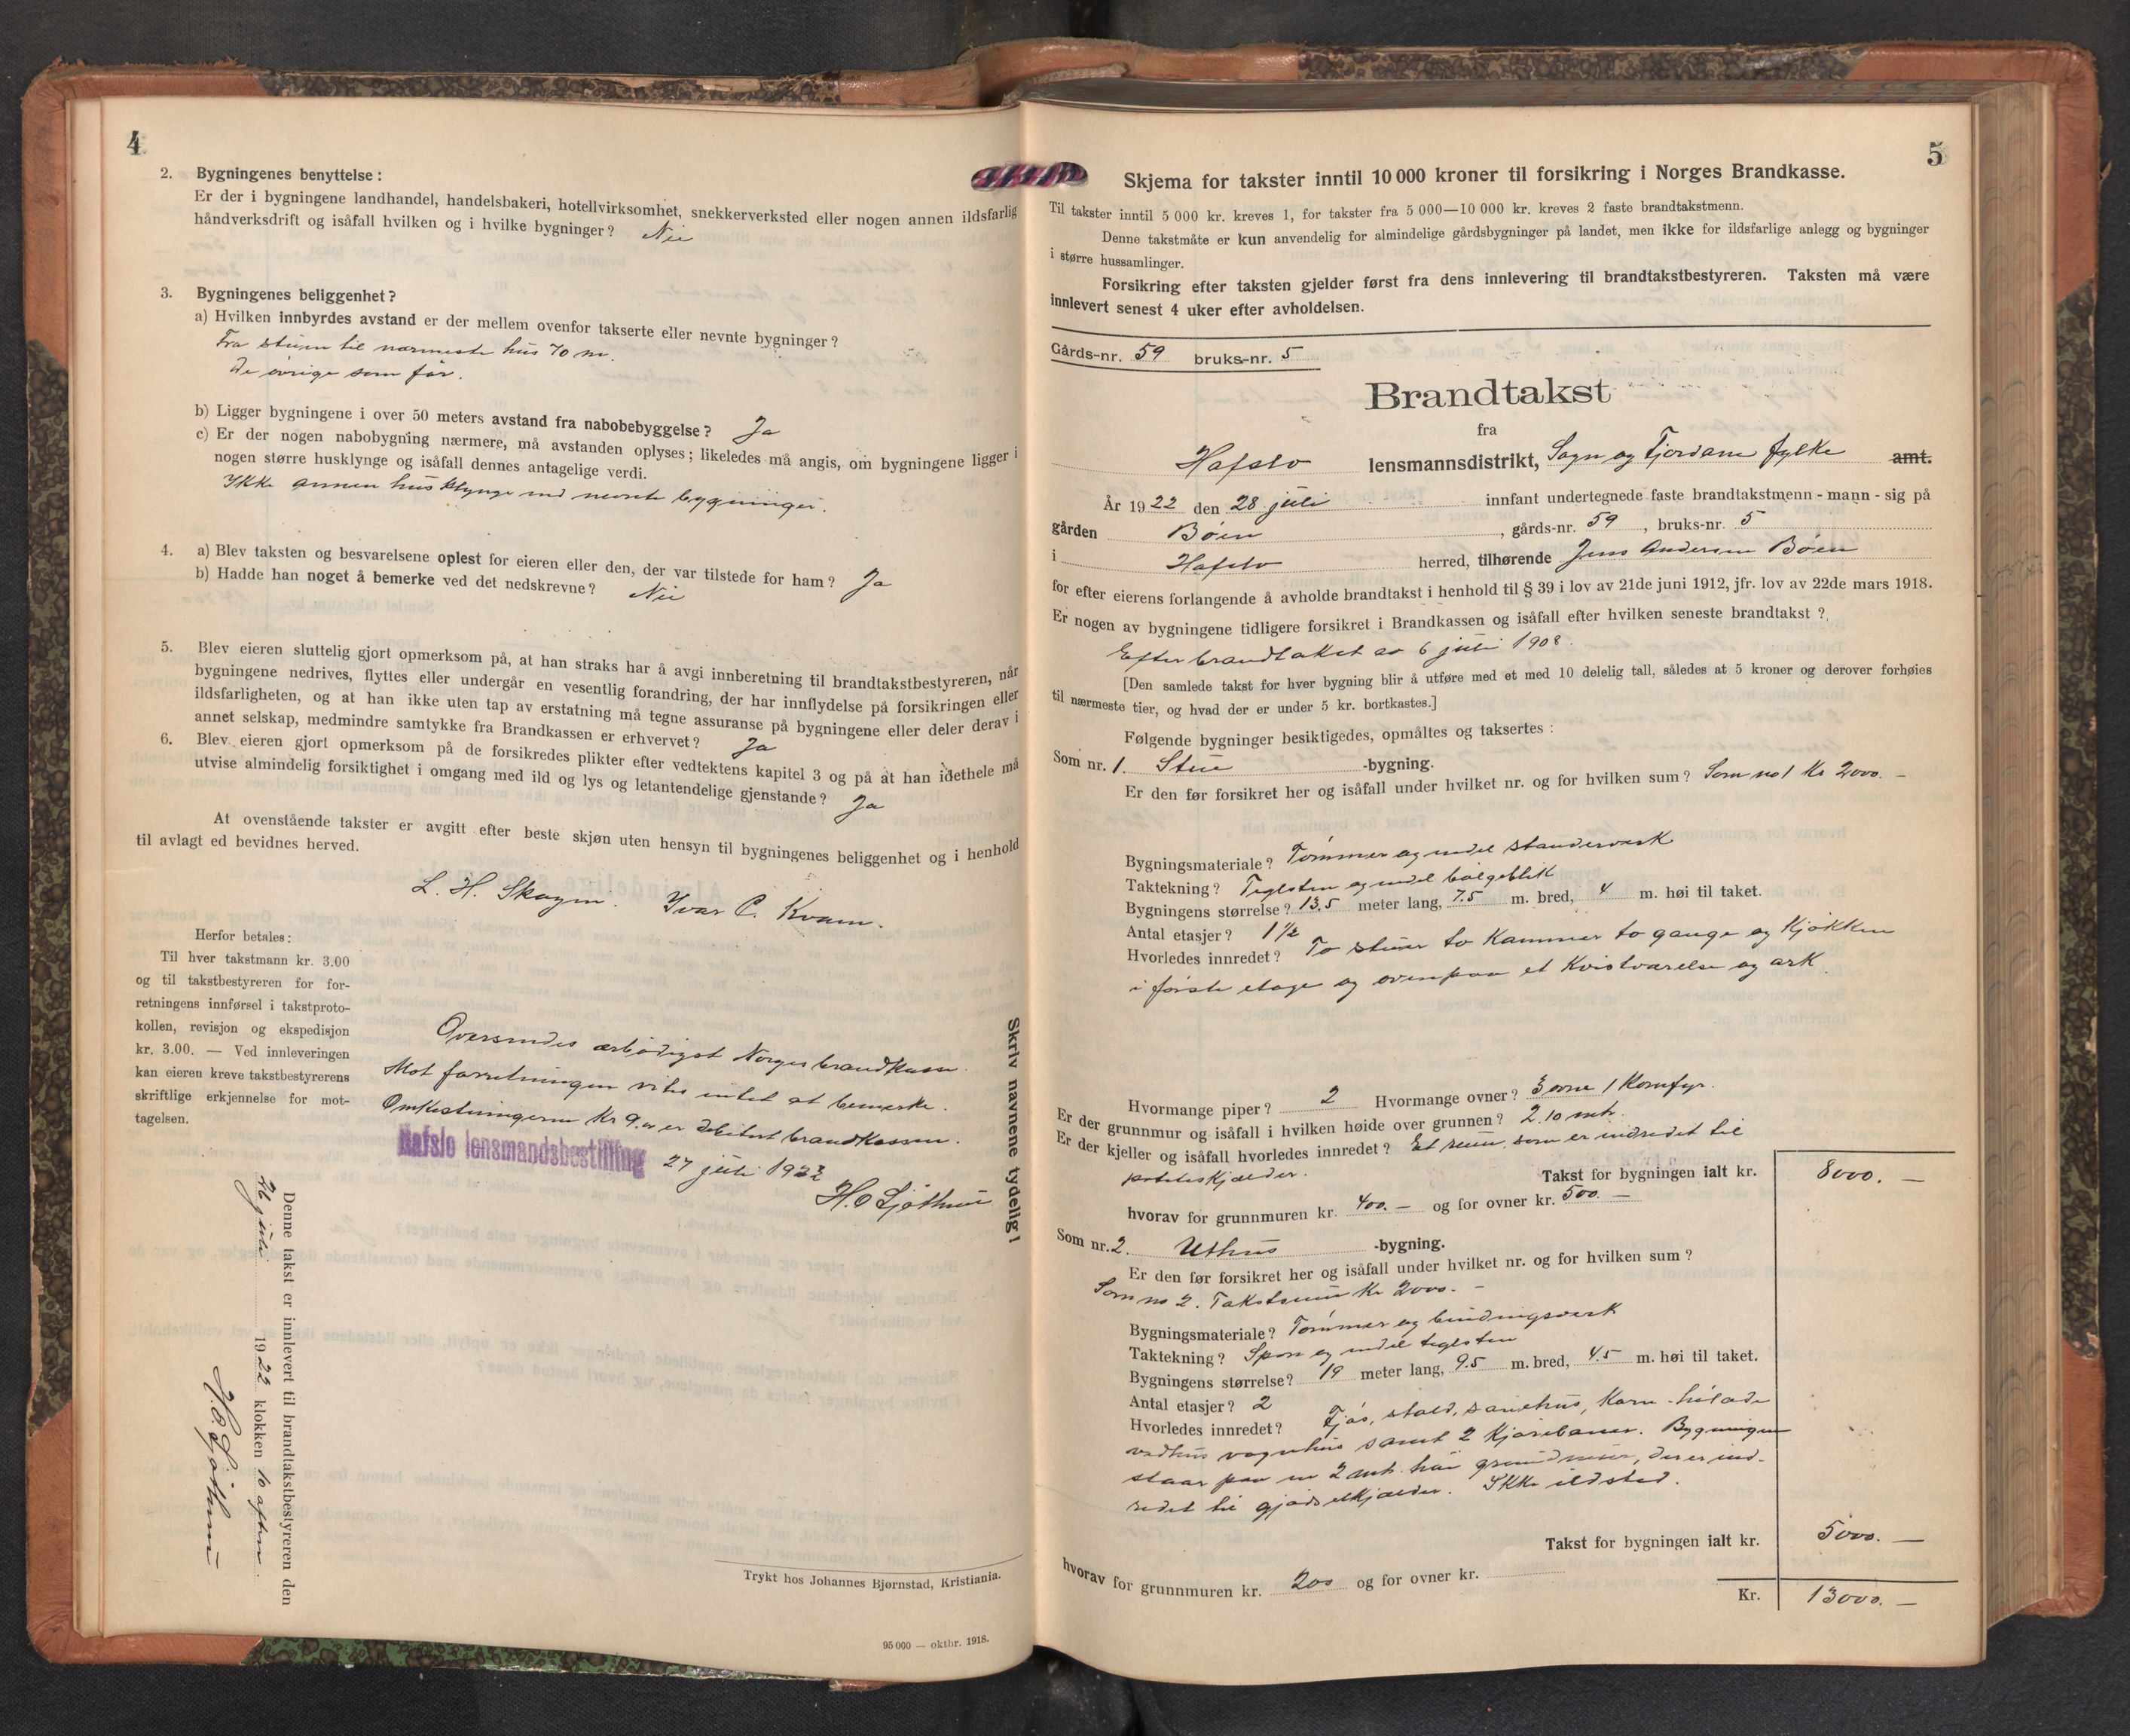 4
2. Bygningenes benyttelse:
Er der i bygningene landhandel, handelsbakeri, hotellvirksomhet, snekkerverksted eller nogen annen ildsfarlig
håndverksdrift og isåfall hvilken og i hvilke bygninger? Nei
3. Bygningenes beliggenhet?
a) Hvilken innbyrdes avstand er der mellem ovenfor takserte eller nevnte bygninger?
Fra stuen til nærmeste hus 70 m.
De øvrige som før.
b) Ligger bygningene i over 50 meters avstand fra nabobebyggelse? Ja
c) Er der nogen nabobygning nærmere, må avstanden oplyses; likeledes må angis, om bygningene ligger i
nogen større husklynge og isåfall dennes antagelige verdi.
Ikke annen husklynge end nevnte bygninger.
4. a) Blev taksten og besvarelsene oplest for eieren eller den, der var tilstede for ham? Ja
b) Hadde han noget å bemerke ved det nedskrevne? Nei
5. Blev eieren sluttelig gjort opmerksom på, at han straks har å avgi innberetning til brandtakstbestyreren, når
bygningene nedrives, flyttes eller undergår en vesentlig forandring, der har innflydelse på forsikringen eller
ildsfarligheten, og at han ikke uten tap av erstatning må tegne assuranse på bygningene eller deler derav i
annet selskap, medmindre samtykke fra Brandkassen er erhvervet? Ja
6. Blev eieren gjort opmerksom på de forsikredes plikter efter vedtektens kapitel 3 og på at han idethele må
utvise almindelig forsiktighet i omgang med ild og lys og letantendelige gjenstande? Ja
At ovenstående takster er avgitt efter beste skjøn uten hensyn til bygningenes beliggenhet og i henhold
til avlagt ed bevidnes herved.
L. H. Skagen. Ivar C. Kvam.
Herfor betales:
Til hver takstmann kr. 3.00
og til takstbestyreren for for-
retningens innførsel i takstproto-
kollen, revisjon og ekspedisjon
kr. 3.00. — Ved innleveringen
kan eieren kreve takstbestyrerens
skriftlige erkjennelse for mot-
tagelsen.
Oversendes ærbødigst Norges brandkasse.
Mot forretningen vites intet at bemerke.
Omkostningerne Kr 9.00 er debitert brandkassen.
Hafslo lensmandsbestilling 27 juli 1922
H. O Sjøthun
Skriv navnene tydelig!
Denne takst er innlevert til brandtakstbestyreren den
26 juli 1922 klokken 10 aften.
H. O Sjøthun
Trykt hos Johannes Bjørnstad, Kristiania.
95 000 — oktbr. 1918.
5
Skjema for takster inntil 10 000 kroner til forsikring i Norges Brandkasse.
Til takster inntil 5 000 kr. kreves 1, for takster fra 5 000—10 000 kr. kreves 2 faste brandtakstmenn.
Denne takstmåte er kun anvendelig for almindelige gårdsbygninger på landet, men ikke for ildsfarlige anlegg og bygninger
i større hussamlinger.
Forsikring efter taksten gjelder først fra dens innlevering til brandtakstbestyreren. Taksten må være
innlevert senest 4 uker efter avholdelsen.
Gårds-nr. 59 bruks-nr. 5
Brandtakst
fra
Hafslo lensmannsdistrikt, Sogn og Fjordane fylke amt.
År 1922 den 28 juli innfant undertegnede faste brandtakstmenn - mann - sig på
gården Bøen, gårds-nr. 59, bruks-nr. 5
i Hafslo herred, tilhørende Jens Andersen Bøen
for efter eierens forlangende å avholde brandtakst i henhold til § 39 i lov av 21de juni 1912, jfr. lov av 22de mars 1918.
Er nogen av bygningene tidligere forsikret i Brandkassen og isåfall efter hvilken seneste brandtakst?
Efter brandtakst av 6 juli 1908.
[Den samlede takst for hver bygning blir å utføre med et med 10 delelig tall, således at 5 kroner og derover forhøies
til nærmeste tier, og hvad der er under 5 kr. bortkastes.]
Følgende bygninger besiktigedes, opmåltes og taksertes:
Som nr. 1. Stue -bygning.
Er den før forsikret her og isåfall under hvilket nr. og for hvilken sum? Som no 1 Kr 2000. -
Bygningsmateriale? Tømmer og endel standerverk
Taktekning? Teglsten og endel bølgeblik
Bygningens størrelse? 13.5 meter lang, 7.5 m. bred, 4 m. høi til taket.
Antal etasjer? 1 ½
Hvorledes innredet? To stuer to Kammer to gange og Kjøkken
i første etage og ovenpaa et Kvistværelse og ark.
Hvormange piper? 2 Hvormange ovner? 3 ovne 1 Komfyr.
Er der grunnmur og isåfall i hvilken høide over grunnen? 2.10 mtr.
Er der kjeller og isåfall hvorledes innredet? Et rum, som er indredet til
poteteskjælder.
Takst for bygningen ialt kr. 8000. —
hvorav for grunnmuren kr. 400. — og for ovner kr. 500. —
Som nr. 2. Uthus -bygning.
Er den før forsikret her og isåfall under hvilket nr. og for hvilken sum?
Som no 2. Takstsum Kr 2000. -
Bygningsmateriale? Tømmer og bindingsverk
Taktekning? Spon og endel teglsten
Bygningens størrelse? 19 meter lang, 9.5 m. bred, 4.5 m. høi til taket.
Antal etasjer? 2
Hvorledes innredet? Fjøs, stald, sauehus, Korn-høilade
vedhus vognhus samt 2 Kjørebaner. Bygningen
staar paa en 2 mtr. høi grundmur, der er ind-
redet til gjødselkjælder. Ikke ildsted.
Takst for bygningen ialt kr. 5000. —
hvorav for grunnmuren kr. 200 og for ovner kr.
Kr. 13000. —